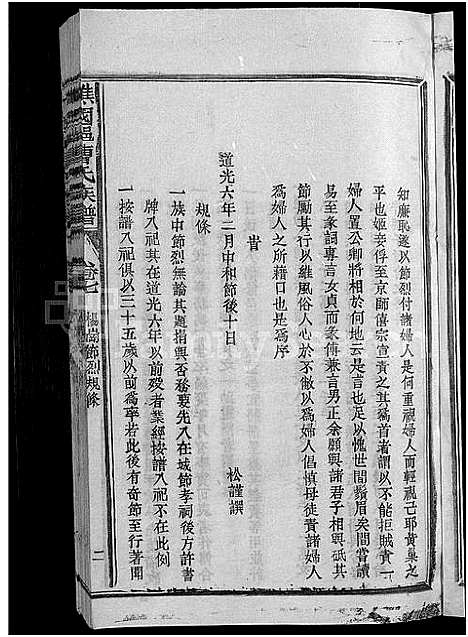 知廉恥遂以節烈付諸婦人是何重視婦人而輕視己耶黃巢之
平也姬妾俘至京師僖宗宣責之其爲首者謂以不能拒賊責一
婦人置公卿將相於何地云是言也足以愧世間鬚眉矣間嘗讀
易至家詞專言女貞而彖傳兼言男正余願與諸君子相與砥其
節勵其行以維風俗人心於不敝以爲婦人倡慎毋徒責諸婦人
爲婦人之所藉口也是爲序
旹
道光六年二月中和節後十日
松謹譔
規條
一族中節烈無論其題捐與否務要先入在城節孝祠後方許書
牌入祀其在道光六年以前歿者業經按譜入祀不在此例
一按譜入祀俱以三十五歲以前爲率若此後有奇節至行著聞
譙國郡曹氏族譜
卷七
楊崗節烈規條
二